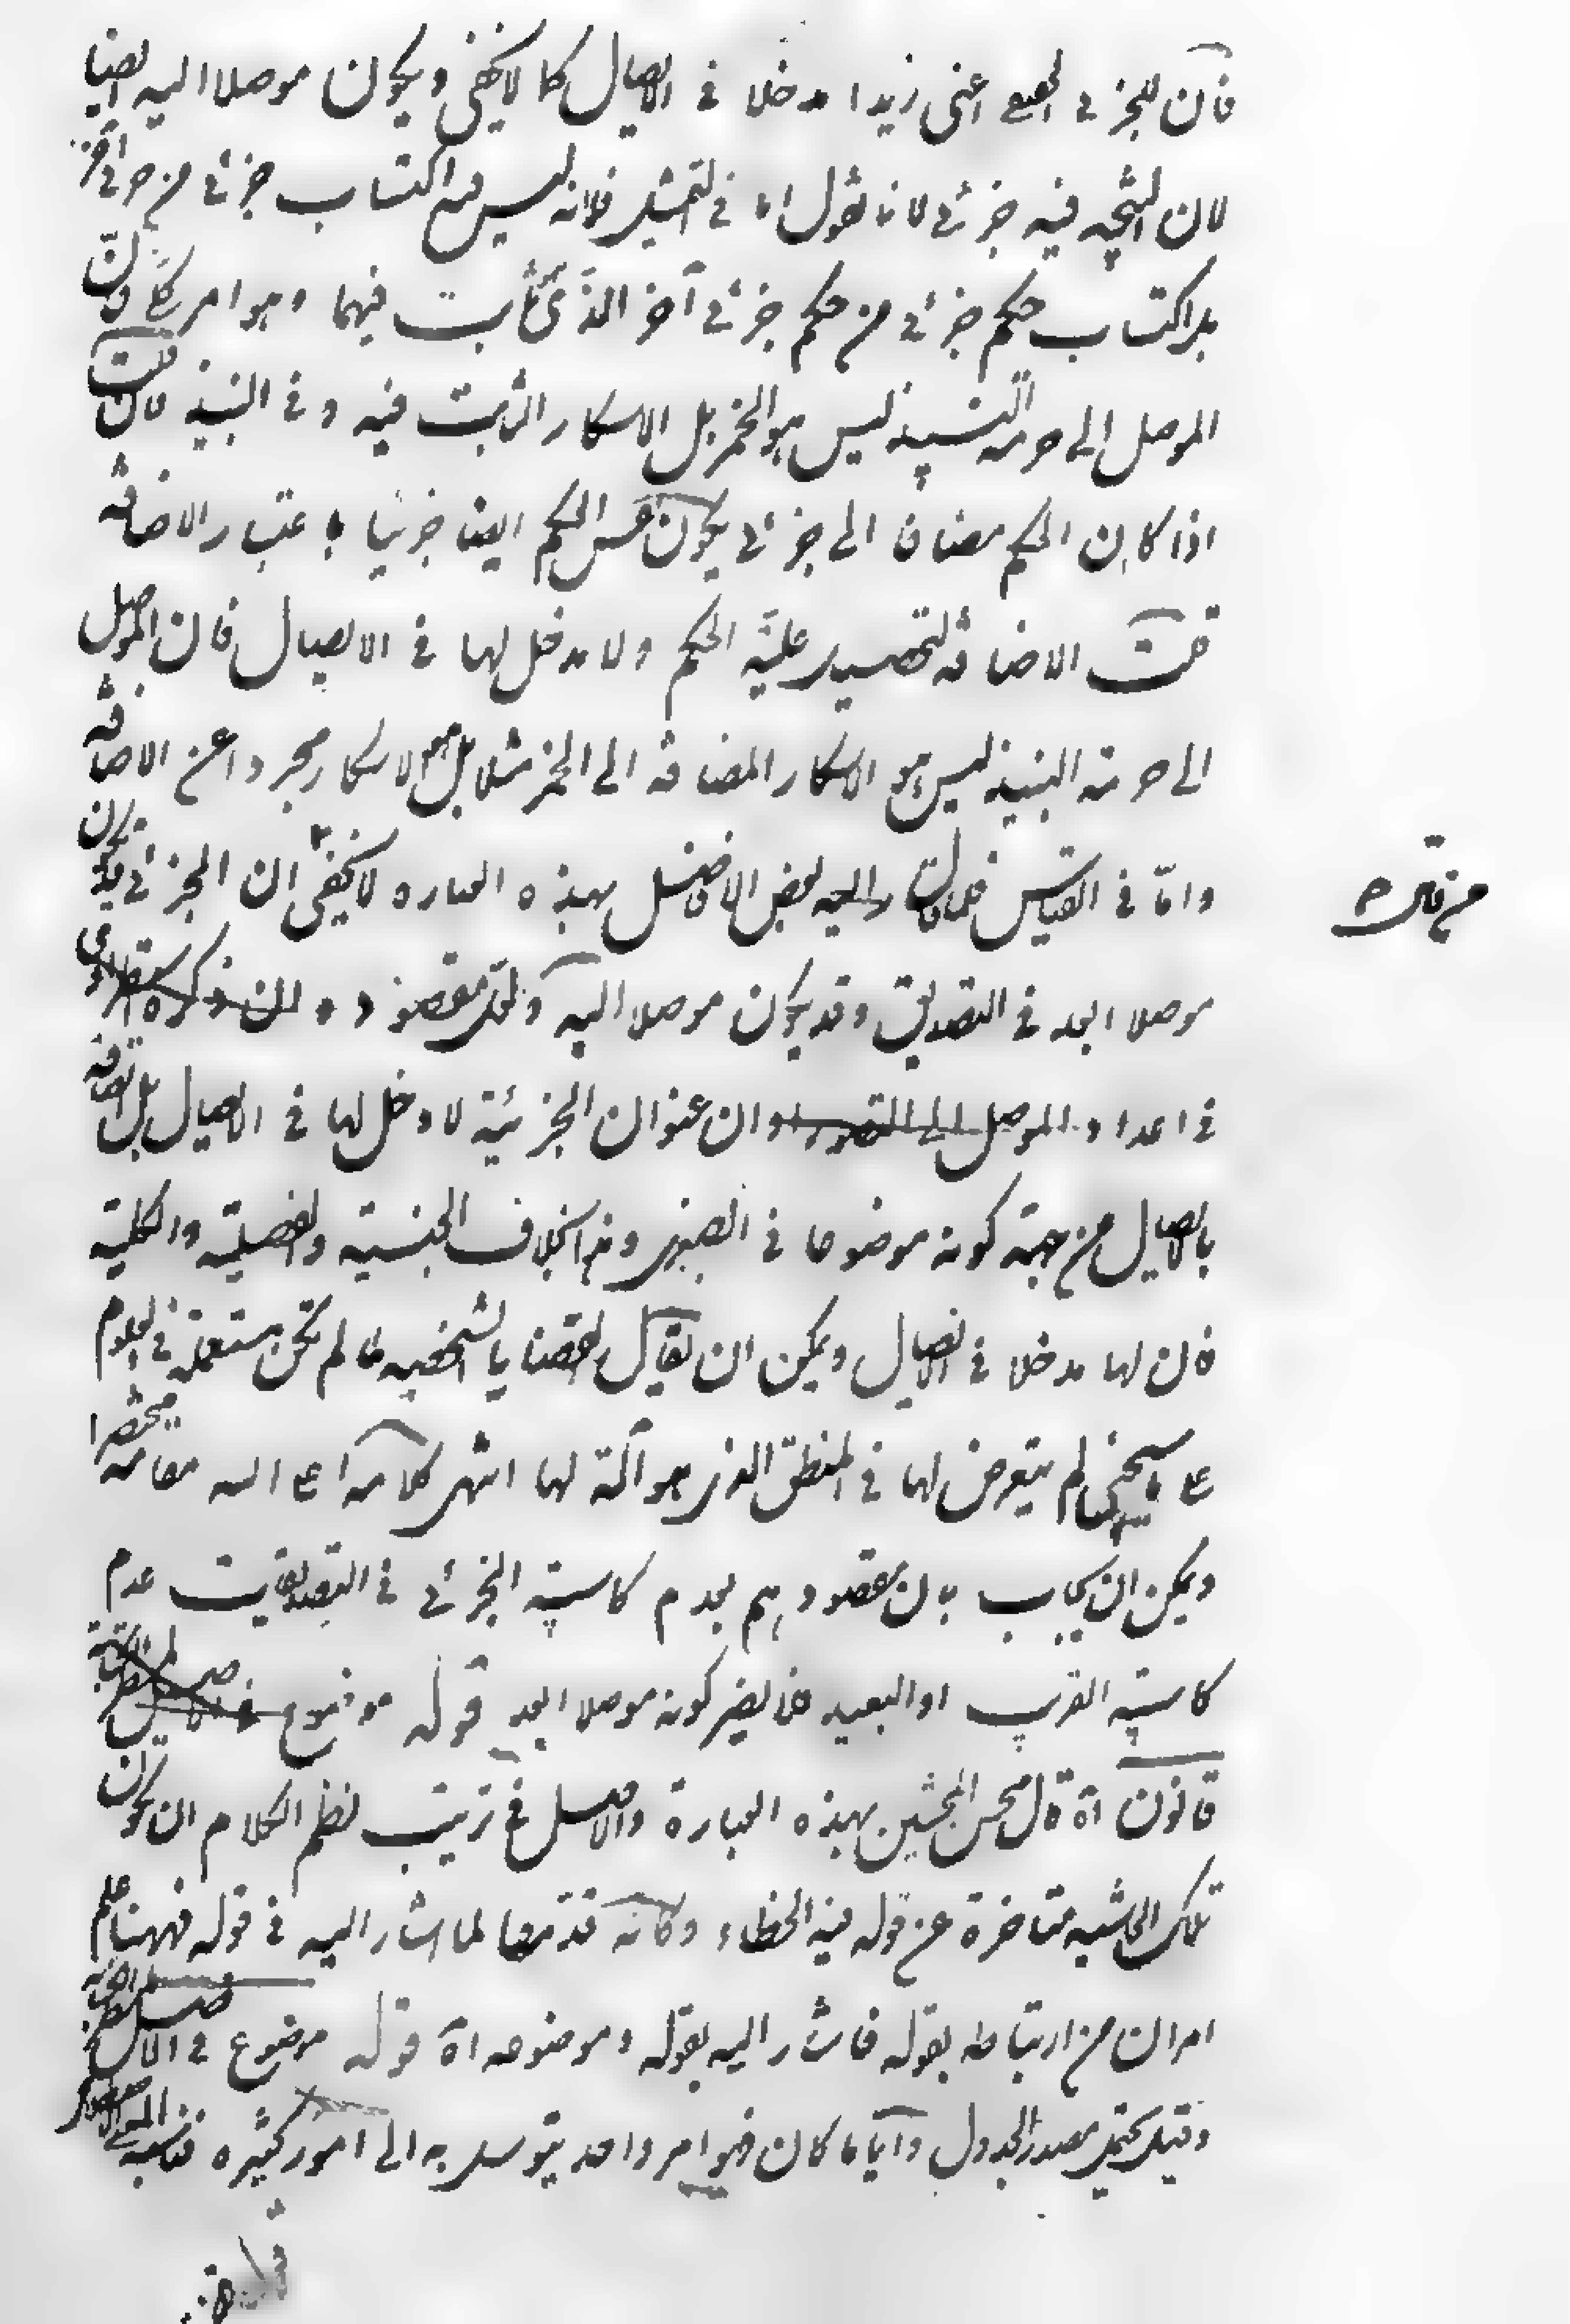 فان للجزئي الحقيقي اعني زيدا مدخلا في الايصال كما لا يخفى ويكون موصلا اليه ايضا
لان النتيجة فيه جزئي لانا نقول اما في التمثيل فلانه ليس فيه اكتساب جزئي من جزئي آخر
بل اكتساب حكم جزئي من حكم جزئي آخر الذي ثابت فيهما وهو امر كلي فان
الموصل الى حرمة النبيذ ليس هو الخمر بل الاسكار الثابت فيه وفي النبيذ فان قلت
اذا كان الحكم مضافا الى جزئي يكون نفس الحكم ايضا جزئيا باعتبار الاضافة
قلت الاضافة لتحصيل علية الحكم ولا مدخل لها في الايصال فان الموصل
الى حرمة النبيذ ليس هو الاسكار المضافة الى الخمر مثلا بل هو الاسكار مجردا عن الاضافة
واما في القياس فلما اشار اليه بعض الافاضل بهذه العبارة لا يخفى ان الجزئي قد يكون
موصلا ابعد في التصديق وقد يكون موصلا اليه ولكن مقصود
في اعداد الموصل الى التصور وان عنوان الجزئية لا دخل لها في الايصال بل اتصافه
بالايصال من جهة كونه موضوعا في الصغرى وهذا بخلاف الجنسية والفصلية والكلية
فان لها مدخلا في الايصال ويمكن ان يقال القضايا الشخصية لما لم تكن مستعملة في العلوم
على ما سيجئ لم يتعرض لها في المنطق الذي هو آلة لها انتهى كلامه اعلى الله مقامه
ويمكن ان يجاب بان مقصودهم بعدم كاسبية الجزئي في التصديقات عدم
كاسبية القريب او البعيد فلا يضر كونه موصلا ابعد قوله موضوع في الاصل
قانون اه قال محسن المحشين بهذه العبارة والاصل في ترتيب نظم الكلام ان يكون
تلك الحاشية متاخرة عن قوله فيه الخطاء وكانه قدمها لما اشار اليه في قوله فههنا علم
امران من ارتباطه بقوله فاشار اليه بقوله وموضوعه اه قوله موضوع في الاصل
وقيل يحتمل مصدر الجدول وايا ما كان فهو امر واحد يتوسل به الى امور كثيرة